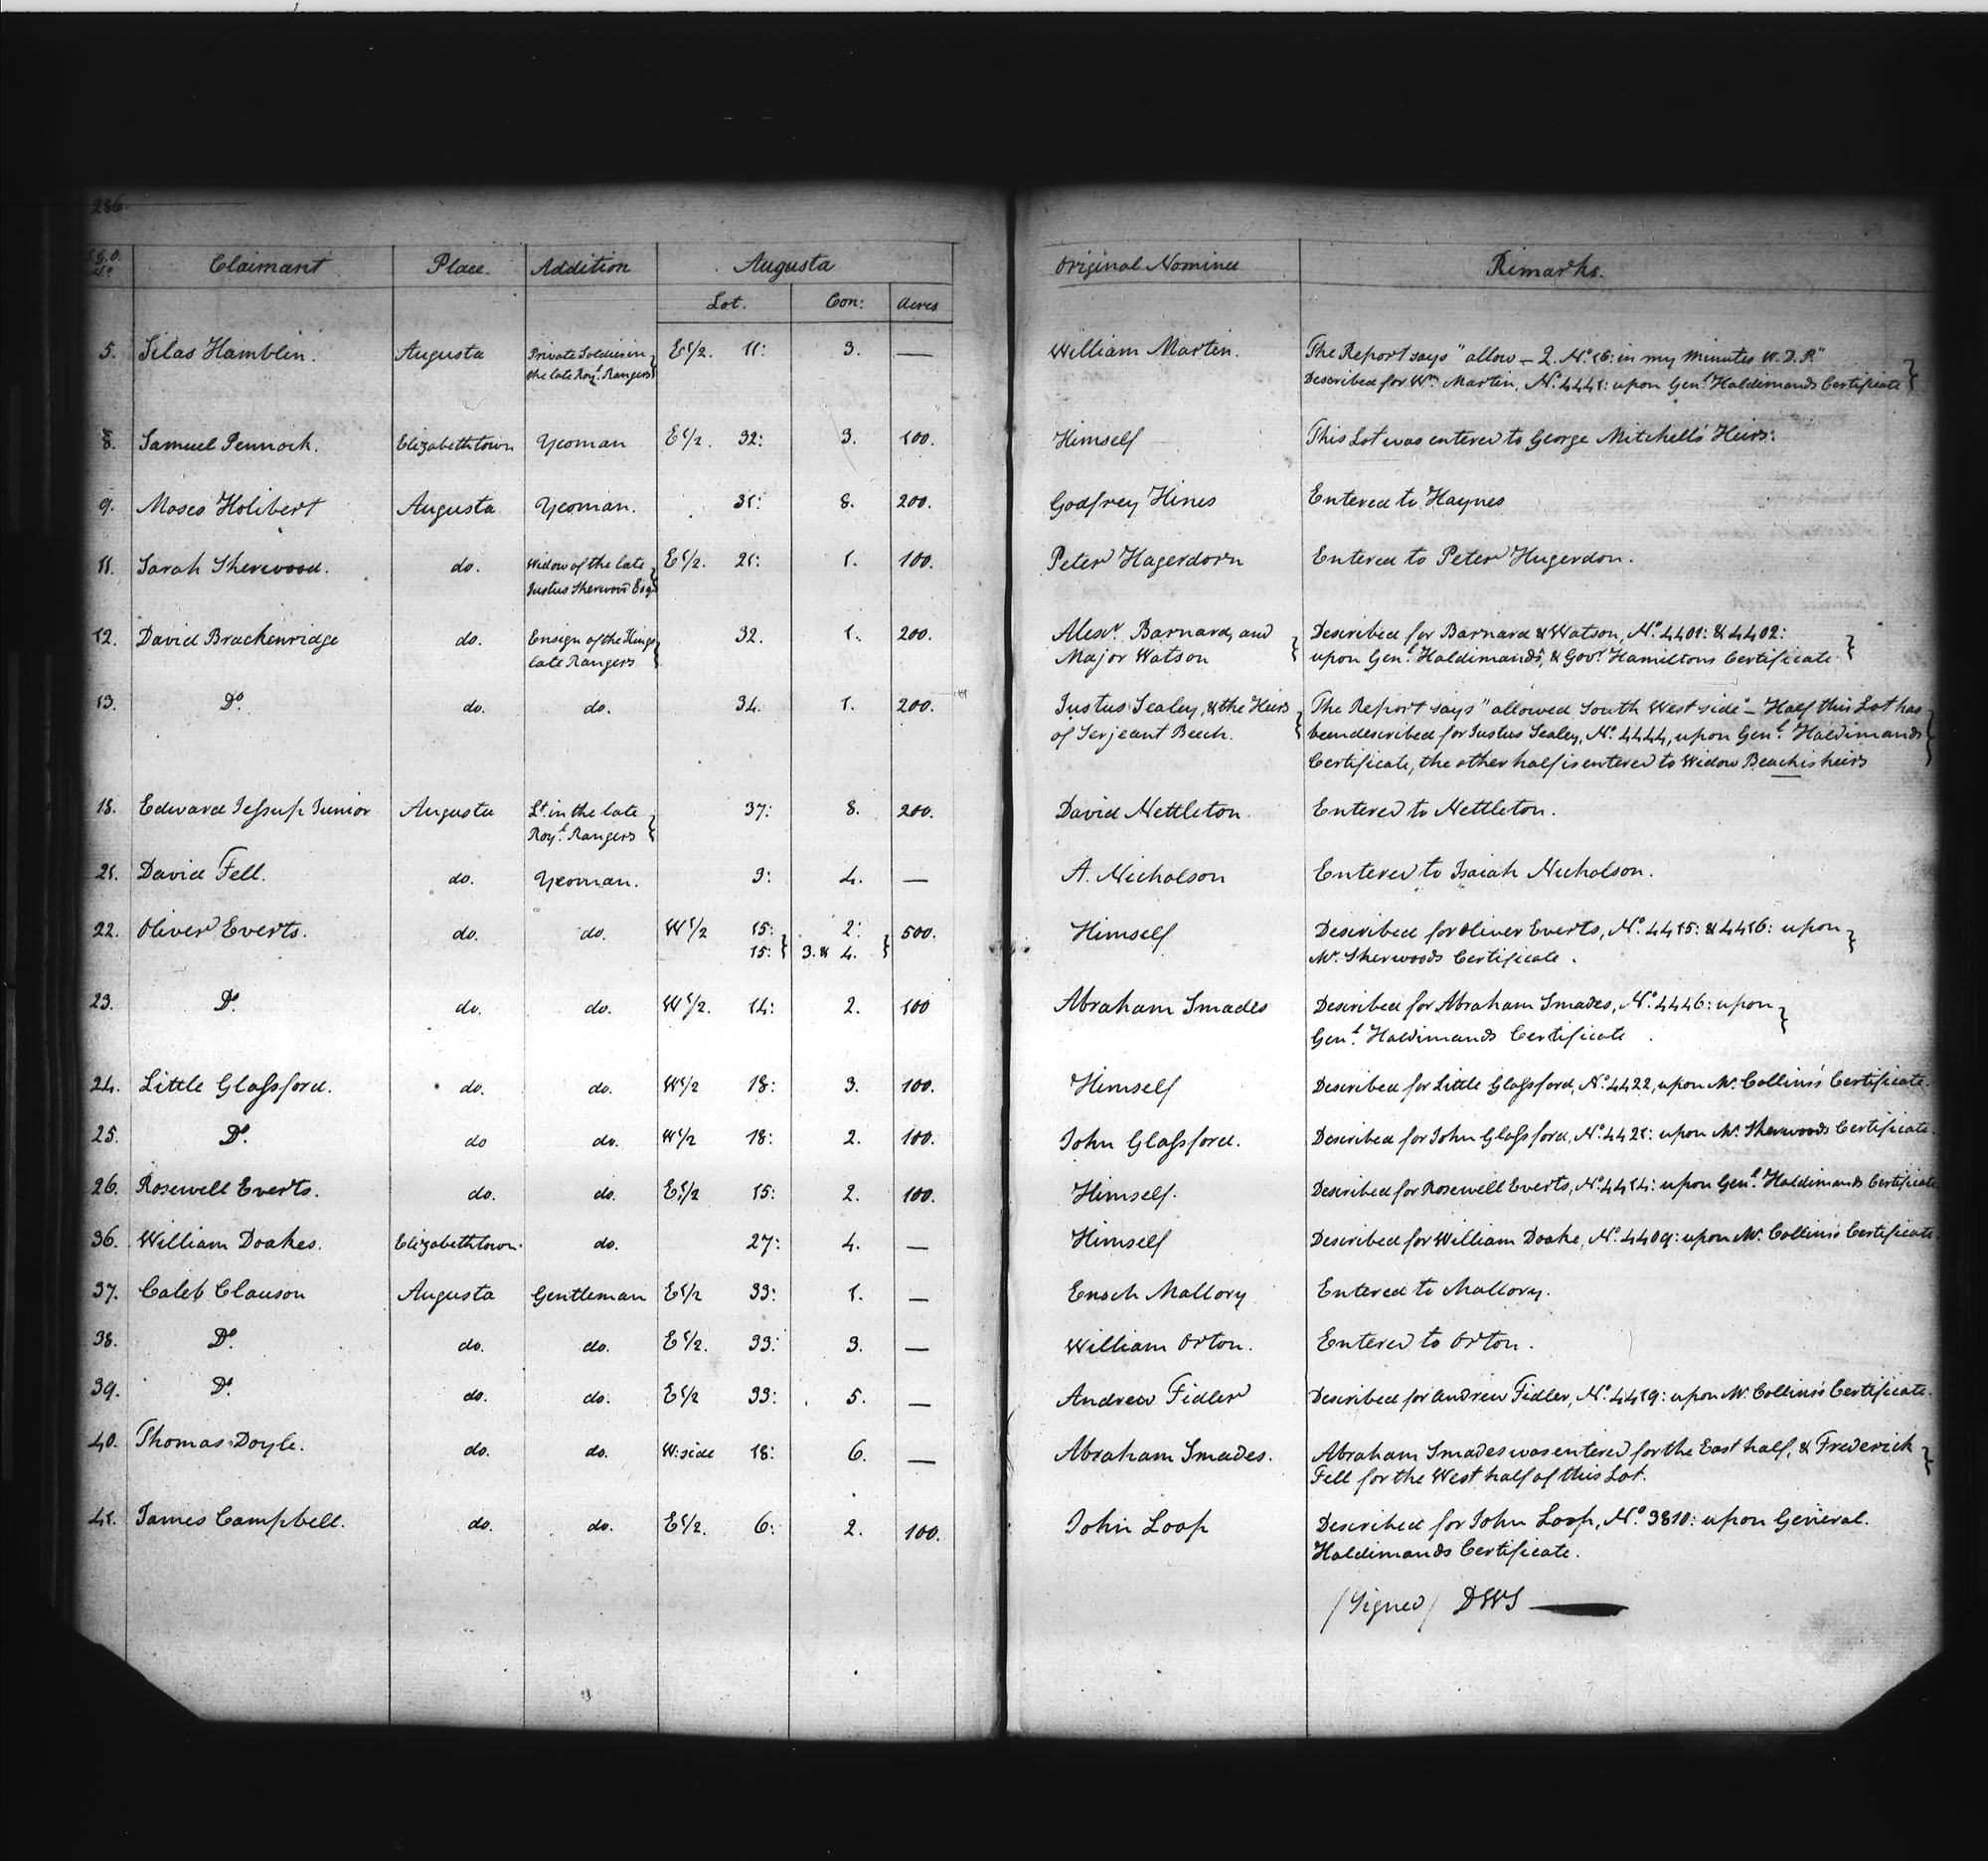 286.
S.G.O. No. Claimant Place. Addition Augusta Original Nominee Remarks.
Lot. Con: Acres
5. Silas Hamblin. Augusta Private Soldier in E 1/2. 11: 3. — William Martin. The Report says "allow — Q. No. 16: in my minutes W.D.P."
the late Royl. Rangers Described for Wm. Martin, No. 4441: upon Genl. Haldimands Certificate
8. Samuel Pennock. Elizabethtown Yeoman E 1/2. 32: 3. 100. Himself This Lot was entered to George Mitchell's Heirs:
9. Moses Holibert Augusta Yeoman. 31: 8. 200. Godfrey Hines Entered to Haynes
11. Sarah Sherwood. do. Widow of the late E 1/2. 21: 1. 100. Peter Hagerdorn Entered to Peter Hugerdon.
Justus Sherwood Esqr.
12. David Brackenridge do. Ensign of the Kings 32. 1. 200. Alexr. Barnard, and Described for Barnard & Watson, No. 4401: & 4402:
late Rangers Major Watson upon Genl. Haldimands, & Govr. Hamiltons Certificate.
13. Do. do. do. 34. 1. 200. Justus Sealey, & the Heirs The Report says "allowed South West side" — Half this Lot has
of Serjeant Beech. been described for Justus Sealey, No. 4444, upon Genl. Haldimands
Certificate, the other half is entered to Widow Beachis heirs
18. Edward Jessup Junior Augusta Lt. in the late 37: 8. 200. David Nettleton. Entered to Nettleton.
Royl. Rangers
21. David Fell. do. Yeoman. 3: 4. — A. Nicholson Entered to Isaiah Nicholson.
22. Oliver Everts. do. do. W 1/2 15: 2: 500. Himself Described for Oliver Everts, No. 4415: & 4416: upon
15: 3. & 4. Mr. Sherwoods Certificate.
23. Do. do. do. W 1/2. 14: 2. 100 Abraham Smades Described for Abraham Smades, No. 4446: upon
Genl. Haldimands Certificate.
24. Little Glassford. do. do. W 1/2 18: 3. 100. Himself Described for Little Glassford, No. 4422, upon Mr. Collins's Certificate.
25. Do. do do. W 1/2 18: 2. 100. John Glassford. Described for John Glassford, No. 4421: upon Mr. Sherwoods Certificate.
26. Rosewell Everts. do. do. E 1/2 15: 2. 100. Himself. Described for Rosewell Everts, No. 4414: upon Genl. Haldimands Certificate
36. William Doakes. Elizabethtown. do. 27: 4. — Himself Described for William Doake, No. 4409: upon Mr. Collins's Certificate.
37. Caleb Clauson Augusta Gentleman E 1/2 33: 1. — Enoch Mallory Entered to Mallory.
38. Do. do. do. E 1/2. 33: 3. — William Orton. Entered to Orton.
39. Do. do. do. E 1/2 33: 5. — Andrew Fidler Described for Andrew Fidler, No. 4419: upon Mr. Collins's Certificate.
40. Thomas Doyle. do. do. W: side 18: 6. — Abraham Smades. Abraham Smades was entered for the East half, & Frederick
Fell for the West half of this Lot.
41. James Campbell. do. do. E 1/2. 6: 2. 100. John Loop Described for John Loop, No. 3810: upon General.
Haldimands Certificate.
/Signed/ DWS